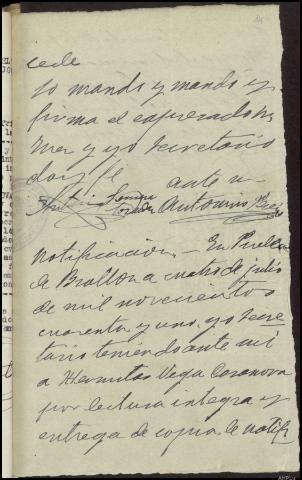 cede
lo mandó y mandó y
firma el expresado
y yo secretario
doy fe
ante mi
Antonino
Notificación.- En Puebla
de Brollon a cuatro de julio
de mil novecientos
cuarenta y uno, yo secre
tario teniendo ante mi
a Hermitas Vega Casanova
por lectura integra y
entrega de copia le notifi